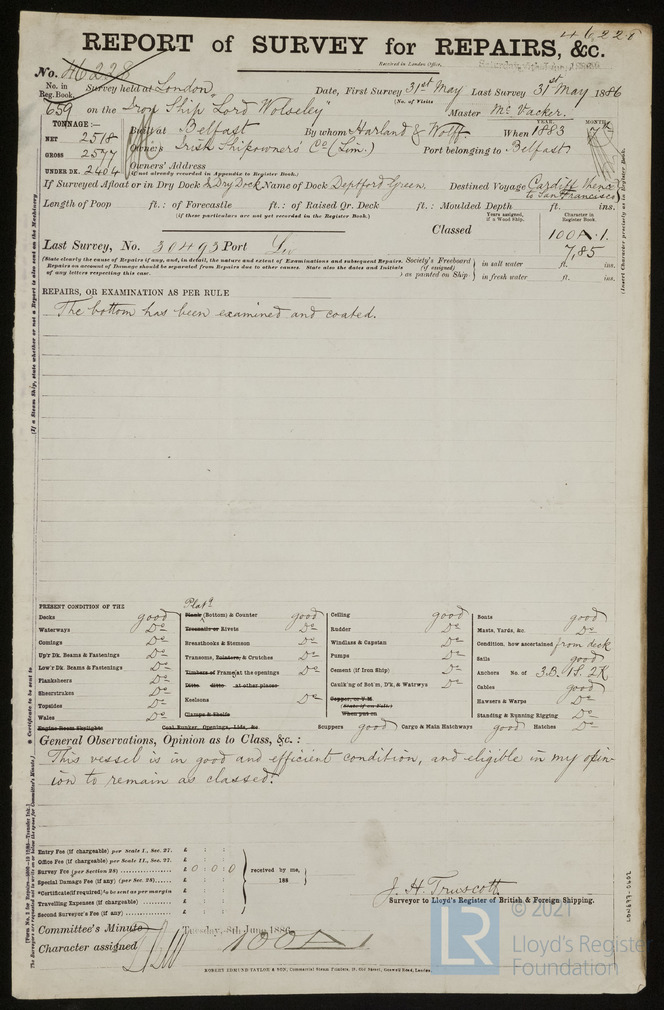 46228
REPORT of SURVEY for REPAIRS, &c.
Received in London Office,
No. 46228
No. in Reg. Book. Survey held at London Date, First Survey 31st May Last Survey 31st May 1886
(No. of Visits
659 on the Iron Ship "Lord Wolseley" Master McVacker.
TONNAGE:—
NET 2518
GROSS 2577
UNDER DK. 2404
Built at Belfast By whom Harland & Wolff When 1883 7th
YEAR. MONTH.
Owners Irish Shipowners' Co (Lim.) Port belonging to Belfast
Owners' Address
(if not already recorded in Appendix to Register Book.)
If Surveyed Afloat or in Dry Dock In Dry Dock Name of Dock Deptford Green. Destined Voyage Cardiff thence to San Francisco
Length of Poop ft.: of Forecastle ft.: of Raised Qr. Deck ft.: Moulded Depth ft. ins.
(if these particulars are not yet recorded in the Register Book.)
Years assigned, if a Wood Ship. Character in Register Book.
Classed 100A.1.
7,85
Last Survey, No. 30493 Port
(State clearly the cause of Repairs if any, and, in detail, the nature and extent of Examinations and subsequent Repairs.
Repairs on account of Damage should be separated from Repairs due to other causes. State also the dates and Initials
of any letters respecting this case.
Society's Freeboard (if assigned) as painted on Ship
in salt water ft. ins.
in fresh water ft. ins.
(Insert Character precisely as in Register Book.
REPAIRS, OR EXAMINATION AS PER RULE
The bottom has been examined and coated.
PRESENT CONDITION OF THE
Decks good
Waterways Do
Comings Do
Up'r Dk. Beams & Fastenings Do
Low'r Dk. Beams & Fastenings Do
Planksheers Do
Sheerstrakes Do
Topsides Do
Wales Do
Engine Room Skylights
Plat'g
Plank (Bottom) & Counter good
Treenails or Rivets Do
Breasthooks & Stemson Do
Transoms, Pointers, & Crutches Do
Timbers of Frame at the openings Do
Ditto ditto at other places
Keelsons Do
Clamps & Shelfs
Coal Bunker, Openings, Lids, &c
Ceiling good
Rudder Do
Windlass & Capstan Do
Pumps Do
Cement (if Iron Ship) Do
Caulk'ng of Bot'm, D'k, & Watrwys Do
Copper, or Y.M.
(State if on Felt)
When put on
Scuppers good Cargo & Main Hatchways good Hatches Do
Boats good
Masts, Yards, &c. Do
Condition, how ascertained from deck
Sails good
Anchors No. of 3.B. 1S. 2K
Cables good
Hawsers & Warps Do
Standing & Running Rigging Do
General Observations, Opinion as to Class, &c.:
This vessel is in good and efficient condition, and eligible in my opin-
ion to remain as classed.
Entry Fee (if chargeable) per Scale I., Sec. 27. £ : :
Office Fee (if chargeable) per Scale II., Sec. 27. £ : :
Survey Fee (per Section 28) £ 0 : 0 : 0
Special Damage Fee (if any) (per Sec. 28) £ : :
Certificate (if required) to be sent as per margin £ : :
Travelling Expenses (if chargeable) £ : :
Second Surveyor's Fee (if any) £ : :
received by me,
188
J. H. Truscott.
Surveyor to Lloyd's Register of British & Foreign Shipping.
Committee's Minute Tuesday, 8th June 1886
Character assigned 100A1
ROBERT EDMUND TAYLOR & SON, Commercial Steam Printers, 19, Old Street, Goswell Road, London.
(If a Steam Ship, state whether or not a Report is also sent on the Machinery
* Certificate to be sent to
LON677-0602
LR © 2021
Lloyd's Register
Foundation